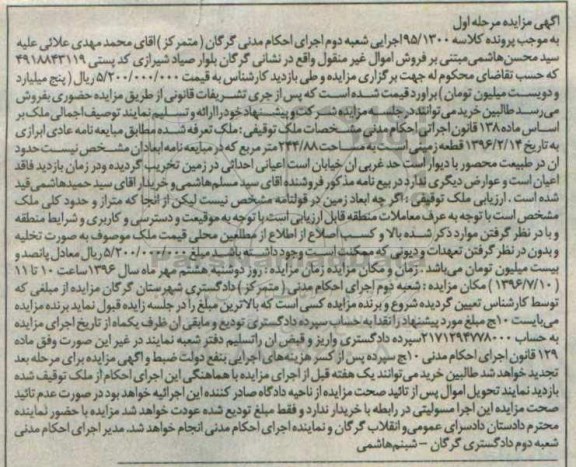 آگهی مزایده مرحله اول
به موجب پرونده کلاسه ۹۵/۱۳۰۰ اجرایی شعبه دوم اجرای احکام مدنی گرگان ( متمرکز ) آقای محمد مهدی علائی علیه
سید محسن هاشمی مبتنی بر فروش اموال غیر منقول واقع در نشانی گرگان بلوار صیاد شیرازی کد پستی ۴۹۱۸۸۴۳۱۱۹
که حسب تقاضای محکوم له جهت برگزاری مزایده و طی بازدید کارشناس به قیمت ۵/۲۰۰/۰۰۰/۰۰۰ ریال ( پنج میلیارد
و دویست میلیون تومان ) برآورد قیمت شده است که پس از جری تشریفات قانونی از طریق مزایده حضوری بفروش
می رسد طالبین خرید می توانند در جلسه مزایده شرکت و پیشنهاد خود را ارائه و تسلیم نمایند توصیف اجمالی ملک بر
اساس ماده ۱۳۸ قانون اجرائی احکام مدنی مشخصات ملک توقیفی : ملک تعرفه شده مطابق مبایعه نامه عادی ابرازی
به تاریخ ۱۳۹۶/۲/۱۴ قطعه زمینی است به مساحت ۲۴۴/۸۸ متر مربع که در مبایعه نامه ابعاد آن مشخص نیست حدود
ان در طبیعت محصور با دیوار است حد غربی ان خیابان است اعیانی احداثی در زمین تخریب گردیده ودر زمان بازدید فاقد
اعیان است و عوارض دیگری ندارد در بیع نامه مذکور فروشنده اقای سید مسلم هاشمی و خریدار اقای سید حمید هاشمی قید
شده است . ارزیابی ملک توقیفی : اگر چه ابعاد زمین در قولنامه مشخص نیست لیکن از آنجا که متراژ و حدود کلی ملک
مشخص است با توجه به عرف معاملات منطقه قابل ارزیابی است با توجه به موقعیت و دسترسی و کاربری و شرایط منطقه
و با در نظر گرفتن موارد ذکر شده بالا و کسب اصلاع از اطلاع از مطلعین محلی قیمت ملک موصوف به صورت تخلیه
و بدون در نظر گرفتن تعهدات و دیونی که ممکنست است وجود داشته باشد مبلغ ۵/۲۰۰/۰۰۰/۰۰۰ ریال معادل پانصد و
بیست میلیون تومان می باشد . زمان و مکان مزایده زمان مزایده : روز دوشنبه هشتم مهر ماه سال ۱۳۹۶ ساعت ۱۰ تا ۱۱
( ۱۳۹۶/۷/۱۰ ) مکان مزایده : شعبه دوم اجرای احکام مدنی ( متمرکز ) دادگستری شهرستان گرگان مزایده از مبلغی که
توسط کارشناس تعیین گردیده شروع و برنده مزایده کسی است که بالاترین مبلغ را در جلسه زایده قبول نماید برنده مزایده
می بایست ۱۰ج مبلغ مورد پیشنهاد را نقدا به حساب سپرده دادگستری تودیع و مابقی ان ظرف یکماه از تاریخ اجرای مزایده
به حساب ۲۱۷۱۲۹۴۷۷۸۰۰۰ سپرده دادگستری واریز و قبض ان را تسلیم دفتر شعبه نمایند در غیر این صورت وفق ماده
۱۲۹ قانون اجرای احکام مدنی ۱۰ج سپرده پس از کسر هزینه های اجرایی بنفع دولت ضبط و آگهی مزایده برای مرحله بعد
تجدید خواهد شد طالبین خرید می توانند یک هفته قبل از اجرای مزایده با هماهنگی این اجرای احکام از ملک توقیف شده
بازدید نمایند تحویل اموال پس از تائید صحت مزایده از ناحیه دادگاه صادر کننده این اجرائیه خواهد بود در صورت عدم تائید
صحت مزایده این اجرا مسولیتی در رابطه با خریدار ندارد و فقط مبلغ تودیع شده عودت خواهد شد مزایده با حضور نماینده
محترم دادستان دادسرای عمومی و انقلاب گرگان و نماینده اجرای احکام مدنی انجام خواهد شد. مدیر اجرای احکام مدنی
شعبه دوم دادگستری گرگان – شبنم هاشمی